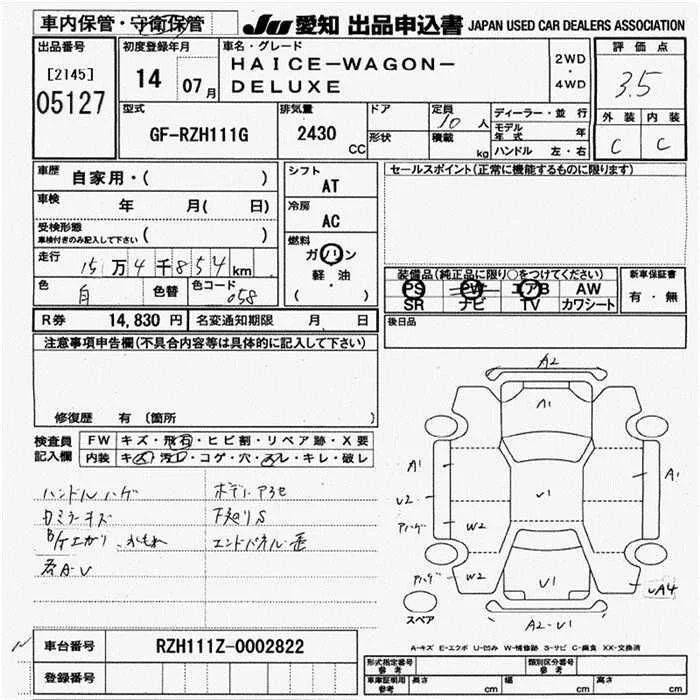 車内保管・守衛保管
JU 愛知 出品申込書 JAPAN USED CAR DEALERS ASSOCIATION
出品番号
[2145]
05127
初度登録年月
14 07月
車名・グレード
HAICE-WAGON-
DELUXE
2WD
・
4WD
評価点
3.5
外装 内装
C C
型式
GF-RZH111G
排気量
2430 CC
ドア
形状
定員 10 人
積載 kg
ディーラー・並行
モデル年式 年
ハンドル 左・右
車歴 自家用・( )
車検 年 月( 日)
受検形態
車検付きのみ記入して下さい ( )
走行 15万4千854km
色 白 色替 色コード 058
シフト
AT
冷房
AC
燃料
ガソリン
軽・油
( )
セールスポイント(正常に機能するものに限ります)
装備品(純正品に限り○をつけてください)
PS PW エアB AW
SR ナビ TV カワシート
新車保証書
有・無
R券 14,830円 名変通知期限 月 日
後日品
注意事項申告欄(不具合内容等は具体的に記入して下さい)
修復歴 有 〔箇所 〕
検査員
記入欄
FW キズ・飛石・ヒビ割・リペア跡・X要
内装 キズ・汚レ・コゲ・穴・スレ・キレ・破レ
ハンドルハゲ
A2
A1
A1
A1
U2
U1
アハゲ
W2
アハゲ
W2
U1
UA4
A2-U1
スペア
A-キズ E-エクボ U-凹み W-補修跡 S-サビ C-腐食 XX-交換済
車台番号 RZH111Z-0002822
登録番号
形式指定番号
参考
類別区分番号
参考
車庫証明用
参考
長さ cm 幅 cm 高さ cm